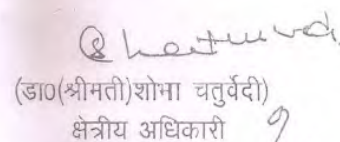 (डा0(श्रीमती)शोभा चतुर्वेदी)
क्षेत्रीय अधिकारी